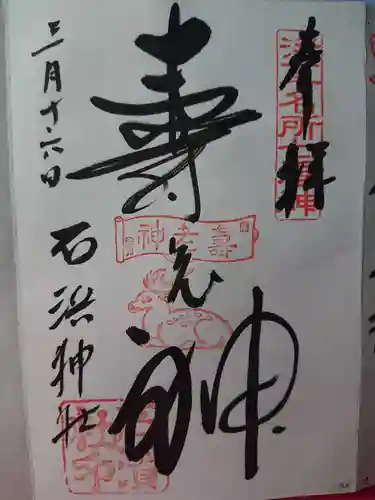 奉拝
浅草名所七福神
寿老神
壽老神
三月十六日
石浜神社